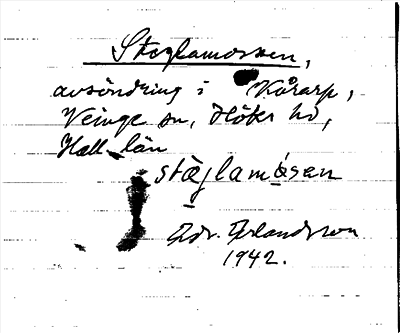 Stäglamossen,
avsöndring i Kårarp,
Veinge sn, Höks hd,
Hall. län
stäglamåsen
Edv. Erlandsson
1942.